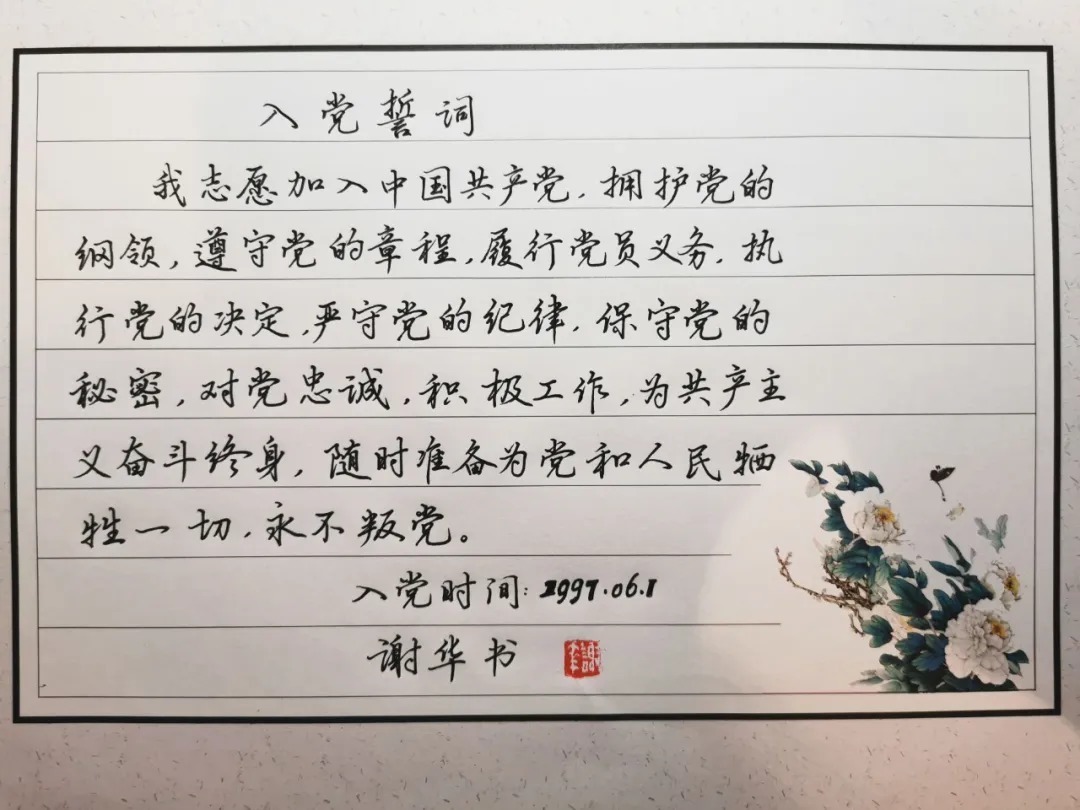 入党誓词
我志愿加入中国共产党,拥护党的
纲领,遵守党的章程,履行党员义务,执
行党的决定,严守党的纪律,保守党的
秘密,对党忠诚,积极工作,为共产主
义奋斗终身,随时准备为党和人民牺
牲一切,永不叛党。
入党时间:1997.06.1
谢华书